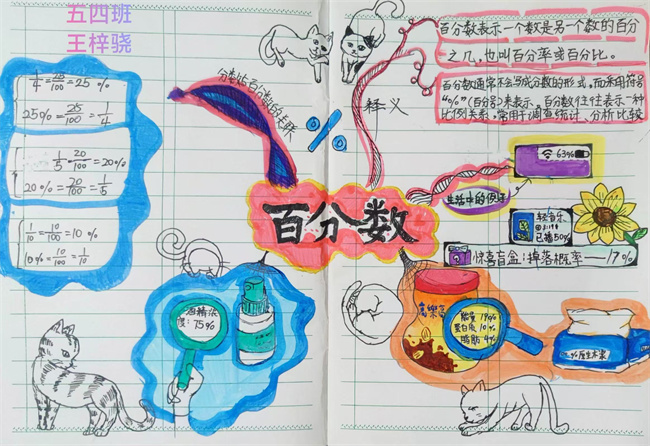 五四班
王梓骁
1/4=25/100=25%
25%=25/100=1/4
1/5=20/100=20%
20%=20/100=1/5
1/10=10/100=10%
10%=10/100=1/10
分数与百分数的关联
%
释义
百分数表示一个数是另一个数的百分
之几，也叫百分率或百分比。
百分数通常不会写成分数的形式，而采用符号
"%"(百分号)来表示，百分数往往表示一种
比例关系，常用于调查统计、分析比较
百分数
生活中的例子
63%
轻音乐
已播50%
惊喜盲盒：掉落概率——17%
酒精浓
度：75%
能量 19%
蛋白质 10%
脂肪 4%